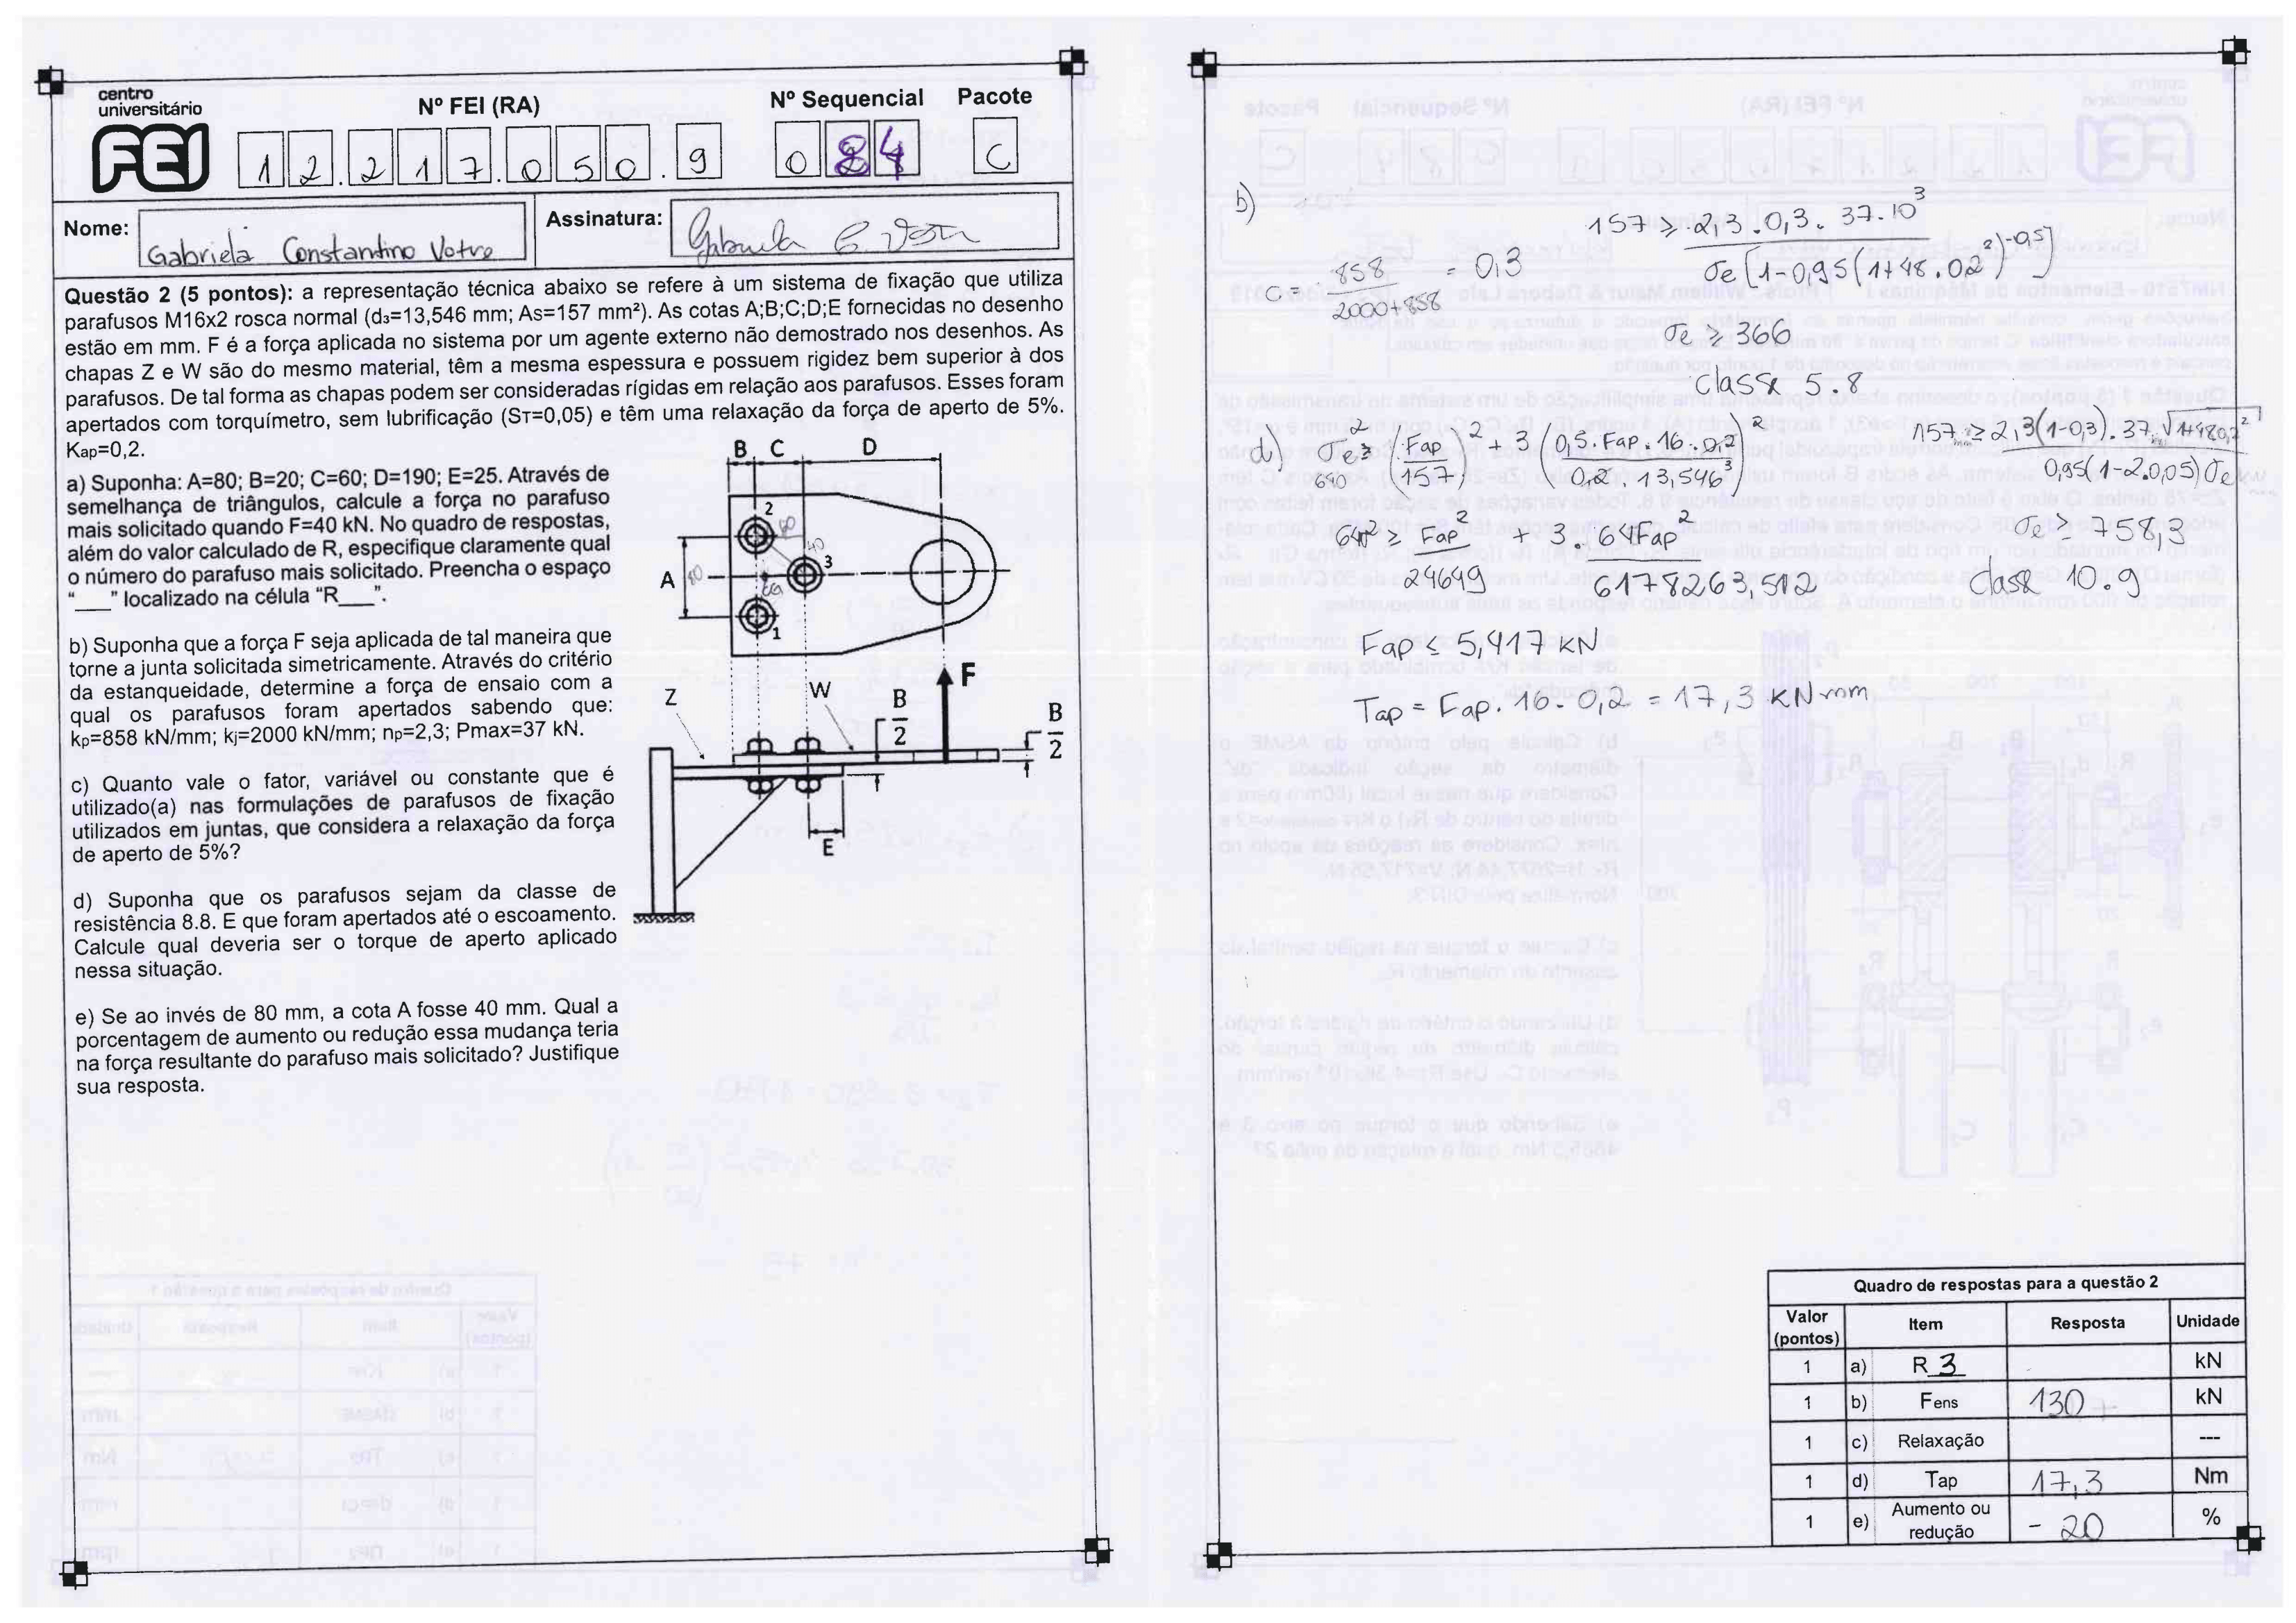 centro
universitário
FEI
Nº FEI (RA)
Nº Sequencial
Pacote
12.217.050.9
084
C
Nome: Gabriela Constantino Votre
Assinatura:
Questão 2 (5 pontos): a representação técnica abaixo se refere à um sistema de fixação que utiliza
parafusos M16x2 rosca normal (d₃=13,546 mm; As=157 mm²). As cotas A;B;C;D;E fornecidas no desenho
estão em mm. F é a força aplicada no sistema por um agente externo não demostrado nos desenhos. As
chapas Z e W são do mesmo material, têm a mesma espessura e possuem rigidez bem superior à dos
parafusos. De tal forma as chapas podem ser consideradas rígidas em relação aos parafusos. Esses foram
apertados com torquímetro, sem lubrificação (ST=0,05) e têm uma relaxação da força de aperto de 5%.
Kap=0,2.
a) Suponha: A=80; B=20; C=60; D=190; E=25. Através de
semelhança de triângulos, calcule a força no parafuso
mais solicitado quando F=40 kN. No quadro de respostas,
além do valor calculado de R, especifique claramente qual
o número do parafuso mais solicitado. Preencha o espaço
“___” localizado na célula “R___”.
b) Suponha que a força F seja aplicada de tal maneira que
torne a junta solicitada simetricamente. Através do critério
da estanqueidade, determine a força de ensaio com a
qual os parafusos foram apertados sabendo que:
kp=858 kN/mm; kj=2000 kN/mm; np=2,3; Pmax=37 kN.
c) Quanto vale o fator, variável ou constante que é
utilizado(a) nas formulações de parafusos de fixação
utilizados em juntas, que considera a relaxação da força
de aperto de 5%?
d) Suponha que os parafusos sejam da classe de
resistência 8.8. E que foram apertados até o escoamento.
Calcule qual deveria ser o torque de aperto aplicado
nessa situação.
e) Se ao invés de 80 mm, a cota A fosse 40 mm. Qual a
porcentagem de aumento ou redução essa mudança teria
na força resultante do parafuso mais solicitado? Justifique
sua resposta.
B C D
2
3
A
1
80
40
F
Z
W
B/2
B/2
E
b)
C = 858 / 2000+858 = 0,3
157 ≥ 2,3 . 0,3 . 37.10³ / σe[1-0,95(1+48.0,2²)^-0,5]
σe ≥ 366
classe 5.8
d) σe² ≥ (Fap / 157)² + 3 (0,5.Fap.16.0,2 / 0,2.13,546³)²
640
640² ≥ Fap² / 24649 + 3. 64Fap² / 6178263,512
Fap ≤ 5,417 kN
Tap = Fap. 16. 0,2 = 17,3 KNmm
157 ≥ 2,3(1-0,3). 37. √1+48.0,2² / 0,95(1-2.0,05)σe
σe ≥ 758,3
classe 10.9
Quadro de respostas para a questão 2
Valor (pontos) Item Resposta Unidade
1 a) R 3 kN
1 b) Fens 130 kN
1 c) Relaxação ---
1 d) Tap 17,3 Nm
1 e) Aumento ou redução - 20 %